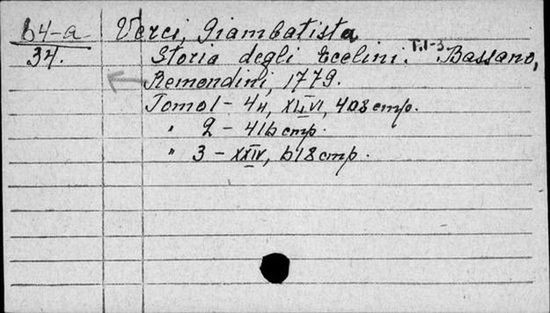 64-a Verci, Giambatista
34. Storia degli Ecelini. T.1-3. Bassano,
Remondini, 1779.
Tomo1 - 4н, XLVI, 408 стр.
" 2 - 416 стр.
" 3 - XXIV, 618 стр.